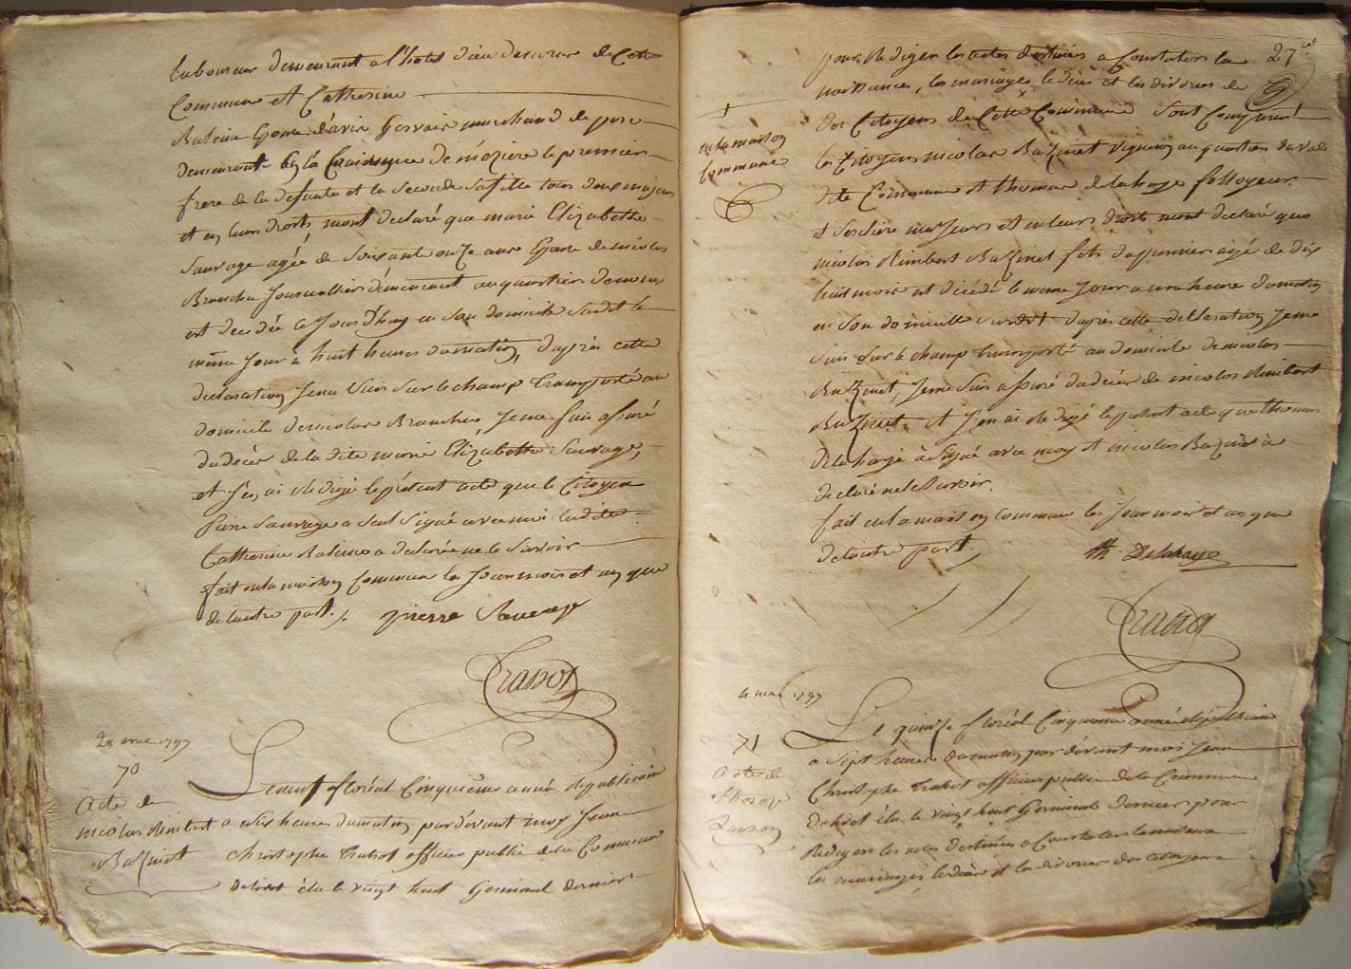 laboureur demeurant a l'hotel dieu decoras de Cette
Commune et Catherine
Balsine femme d'avin Gervais marchand de porc
demeurant de mezière le premier
frere de la defunte et la seconde sa fille tous deux majeurs
et en leurs droits, mont declaré que marie Elizabethe
Sauvage agée de soixante onze ans femme de nicolas
Brancher Journallier demeurant au quartier
est decedée ce Jourd'huy en son domicile susdit le
même Jour à huit heures du matin, d'après cette
declaration Jeme suis sur le champ transporté au
domicile de nicolas Brancher, Jeme suis assuré
du decès de la dite marie Elizabethe Sauvage,
et J'en ai redigé le présent acte que le Citoyen
Pierre Sauvage a seul signé avec moi ladite
Catherine Balsine a declaré ne le savoir
fait en la maison Commune les Jour mois et an que
de l'autre part. pierre Sauvage
Trabot
28 avril 1797
70
Acte de
nicolas Rimbert
Bazinet
Le neuf floréal Cinquieme année républicaine
a dix heures du matin pardevant moy Jean
Christophe Trabot officier public de la Commune
élu le vingt huit Germinal dernier
27
pour rédiger les actes destinés a Constater les
naissances, les mariages, le décès et les divorces
des Citoyens de Cette Commune Sont Comparu
les Citoyens nicolas Bazinet vigneron au quartier
dite Commune et thomas delahaye fossoyeur
majeurs et en leurs droits mont declaré que
nicolas Rimbert Bazinet fils du premier agé de dix
huit mois est décédé le même Jour a une heure du matin
en son domicille susdit d'après cette declaration Jeme
suis sur le champ transporté au domicile de nicolas
Bazinet, Jeme suis assuré du decès de nicolas Rimbert
Bazinet, et J'en ai redigé le présent acte que thomas
delahaye à signé avec moy et nicolas Bazinet à
declaré ne le savoir.
fait en la maison commune les Jour mois et an que
de l'autre part
en la maison
Commune
th Delahaye
Trabot
4 mai 1797
71
Acte de
Le quinze floréal Cinquieme année républicaine
a sept heures du matin pardevant moi Jean
Christophe Trabot officier public de la Commune
élu le vingt huit Germinal dernier pour
Rediger les actes destinés a Constater les naissances
les mariages, le décès et les divorces des Citoyens